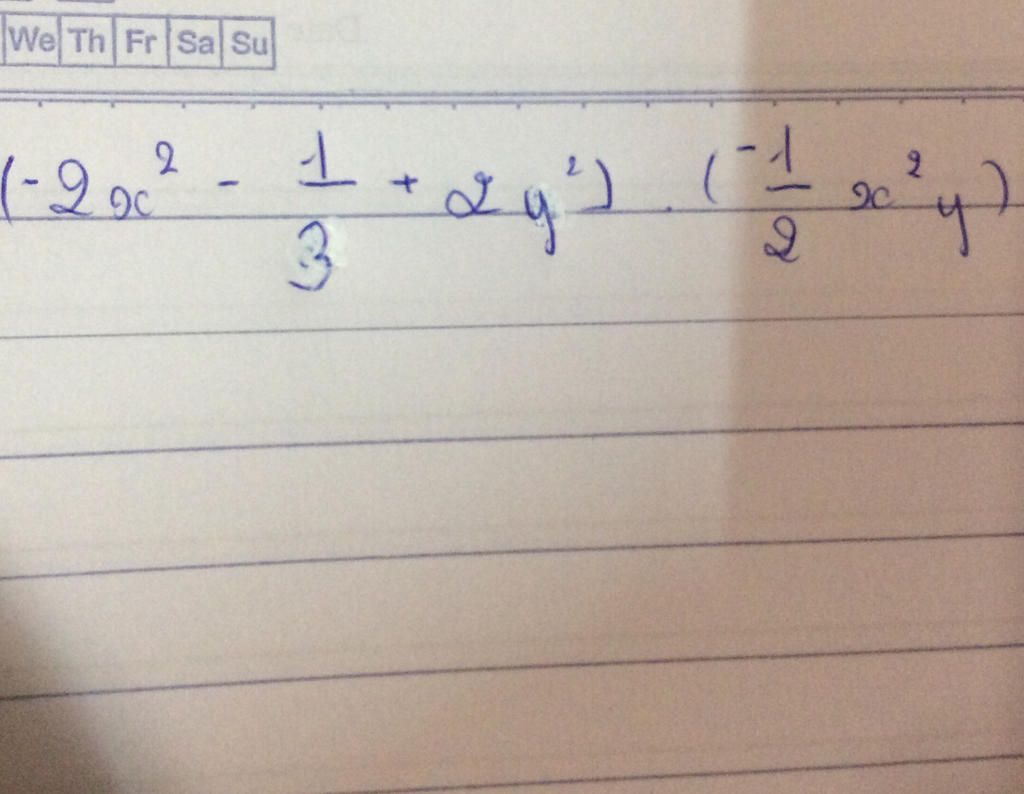 We Th Fr Sa Su
(-2x² - 1/3 + 2y²) . (-1/2 x²y)